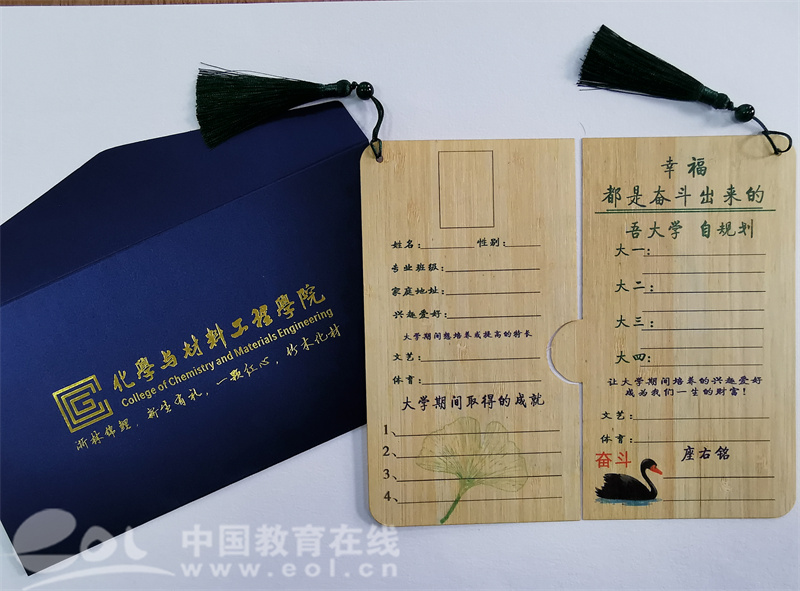 化學与材料工程學院
College of Chemistry and Materials Engineering
浙林锦鲤，新生有礼，一颗红心，竹木化材
姓名：
性别：
专业班级：
家庭地址：
兴趣爱好：
大学期间想培养或提高的特长
文艺：
体育：
大学期间取得的成就
1、
2、
3、
4、
幸福
都是奋斗出来的
吾大学 自规划
大一：
大二：
大三：
大四：
让大学期间培养的兴趣爱好
成为我们一生的财富！
文艺：
体育：
奋斗
座右铭
eol 中国教育在线
www.eol.cn